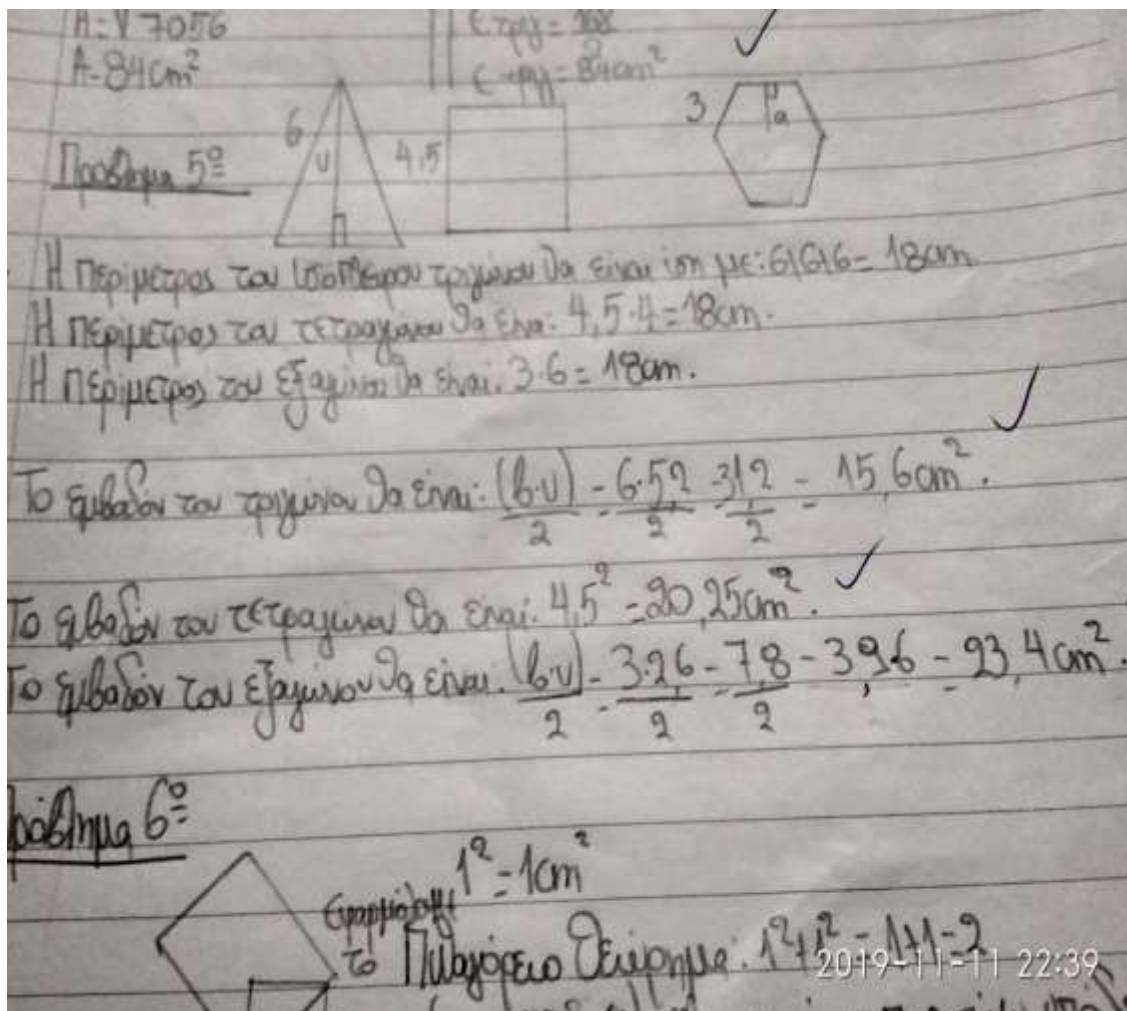 A=√7056
Ετριγ=168
A=84cm²
Ετριγ=84cm²
6 υ 4,5 3 α
Πρόβλημα 5º
Η περίμετρος του ισοπλεύρου τριγώνου θα είναι ίση με: 6+6+6= 18cm
Η περίμετρος του τετραγώνου θα είναι: 4,5·4=18cm.
Η περίμετρος του εξαγώνου θα είναι: 3·6= 18cm.
Το εμβαδόν του τριγώνου θα είναι: (β·υ)/2 = 6·5,2/2 = 31,2/2 = 15,6cm².
Το εμβαδόν του τετραγώνου θα είναι: 4,5²=20,25cm².
Το εμβαδόν του εξαγώνου θα είναι: (β·υ)/2 = 3·2,6/2 = 7,8/2 = 3,9·6 = 23,4cm².
Πρόβλημα 6º
1²=1cm²
Εφαρμόζουμε
το Πυθαγόρειο Θεώρημα: 1²+1²=1+1=2
2019-11-11 22:39